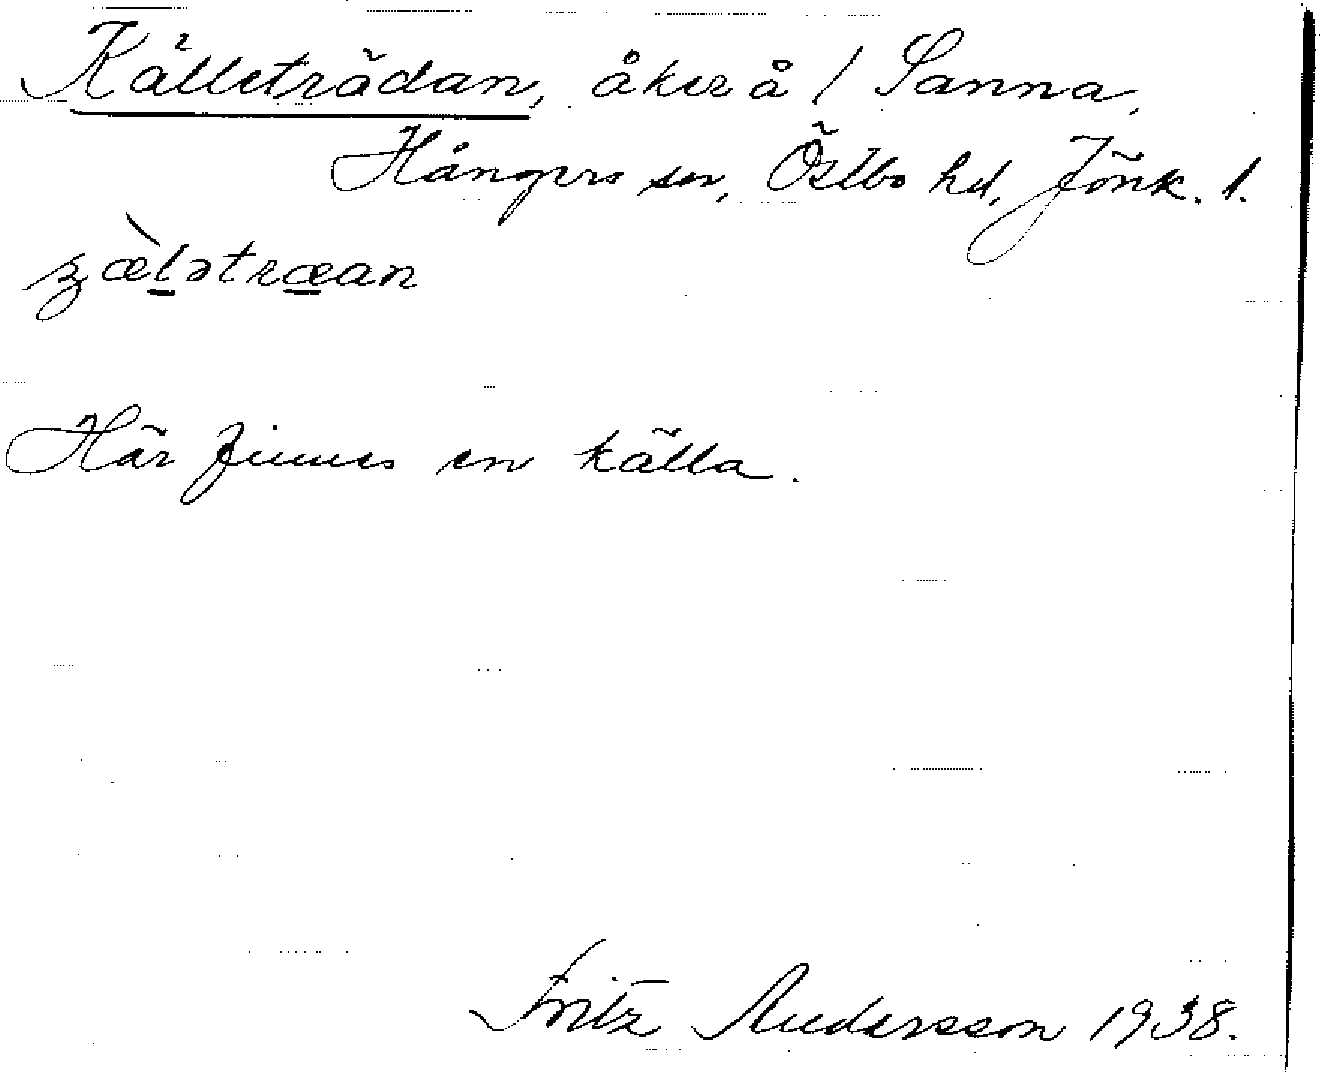 Källeträdan, åker å / Sanna,
Hångers sn, Östbo hd, Jönk. l.
ʒæ̀lstræan
Här finnes en källa.
Fritz Andersson 1938.